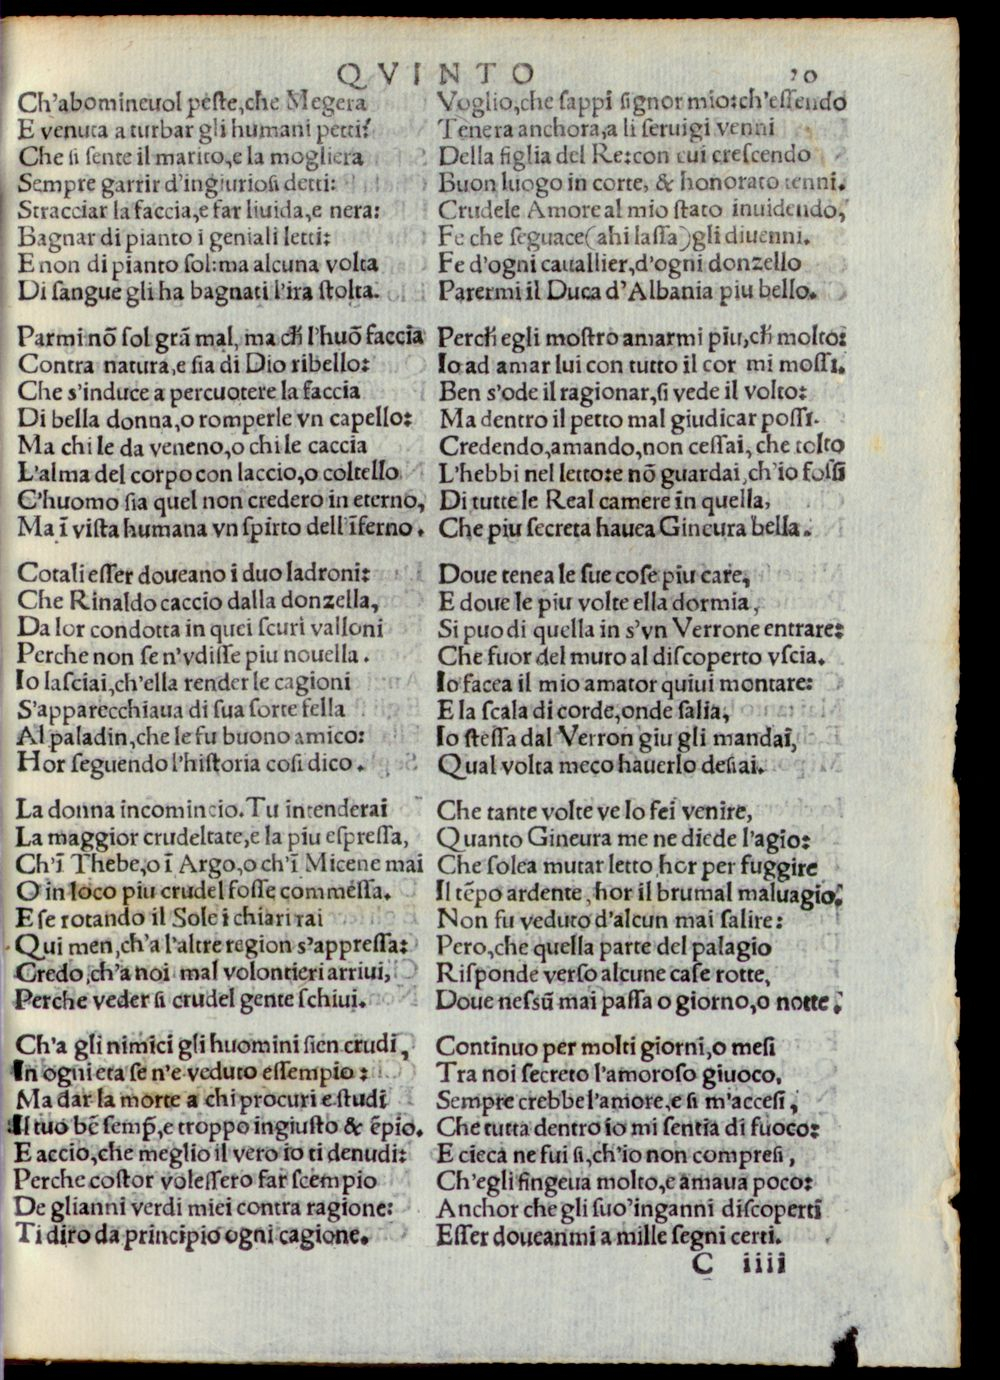 QVINTO 20
Ch'abomineuol peste,che Megera
E venuta a turbar gli humani petti?
Che si sente il marito,e la mogliera
Sempre garrir d'ingiuriosi detti:
Stracciar la faccia,e far liuida,e nera:
Bagnar di pianto i geniali letti:
E non di pianto sol:ma alcuna volta
Di sangue gli ha bagnati l'ira stolta.
Parmi nō sol grā mal, ma ch̄ l'huō faccia
Contra natura,e sia di Dio ribello:
Che s'induce a percuotere la faccia
Di bella donna,o romperle vn capello:
Ma chi le da veneno,o chi le caccia
L'alma del corpo con laccio,o coltello
C'huomo sia quel non credero in eterno,
Ma ī vista humana vn spirto dell'īferno.
Cotali esser doueano i duo ladroni:
Che Rinaldo caccio dalla donzella,
Da lor condotta in quei scuri valloni
Perche non se n'vdisse piu nouella.
Io lasciai,ch'ella render le cagioni
S'apparecchiaua di sua sorte fella
Al paladin,che le fu buono amico:
Hor seguendo l'historia cosi dico.
La donna incomincio.Tu intenderai
La maggior crudeltate,e la piu espressa,
Ch'ī Thebe,o ī Argo,o ch'ī Micene mai
O in loco piu crudel fosse commessa.
E se rotando il Sole i chiari rai
Qui men,ch'a l'altre region s'appressa:
Credo,ch'a noi mal volontieri arriui,
Perche veder si crudel gente schiui.
Ch'a gli nimici gli huomini sien crudi,
In ogni eta se n'e veduto essempio:
Ma dar la morte a chi procuri e studi
Il tuo bē semp̄,e troppo ingiusto & ēpio.
E accio,che meglio il vero io ti denudi:
Perche costor volessero far scempio
De glianni verdi miei contra ragione:
Ti diro da principio ogni cagione.
Voglio,che sappi signor mio:ch'essendo
Tenera anchora,a li seruigi venni
Della figlia del Re:con cui crescendo
Buon luogo in corte, & honorato tenni.
Crudele Amore al mio stato inuidendo,
Fe che seguace(ahi lassa)gli diuenni.
Fe d'ogni cauallier,d'ogni donzello
Parermi il Duca d'Albania piu bello.
Perch̄ egli mostro amarmi piu,ch̄ molto:
Io ad amar lui con tutto il cor mi mossi.
Ben s'ode il ragionar,si vede il volto:
Ma dentro il petto mal giudicar possi.
Credendo,amando,non cessai, che tolto
L'hebbi nel letto:e nō guardai,ch'io fossi
Di tutte le Real camere in quella,
Che piu secreta hauea Gineura bella.
Doue tenea le sue cose piu care,
E doue le piu volte ella dormia,
Si puo di quella in s'vn Verrone entrare:
Che fuor del muro al discoperto vscia.
Io facea il mio amator quiui montare:
E la scala di corde,onde salia,
Io stessa dal Verron giu gli mandai,
Qual volta meco hauerlo desiai.
Che tante volte ve lo fei venire,
Quanto Gineura me ne diede l'agio:
Che solea mutar letto,hor per fuggire
Il tēpo ardente, hor il brumal maluagio:
Non fu veduto d'alcun mai salire:
Pero,che quella parte del palagio
Risponde verso alcune case rotte,
Doue nessū mai passa o giorno,o notte.
Continuo per molti giorni,o mesi
Tra noi secreto l'amoroso giuoco,
Sempre crebbe l'amore,e si m'accesi,
Che tutta dentro io mi sentia di fuoco:
E cieca ne fui si,ch'io non compresi,
Ch'egli fingeua molto,e amaua poco:
Anchor che gli suo'inganni discoperti
Esser doueanmi a mille segni certi.
C iiii